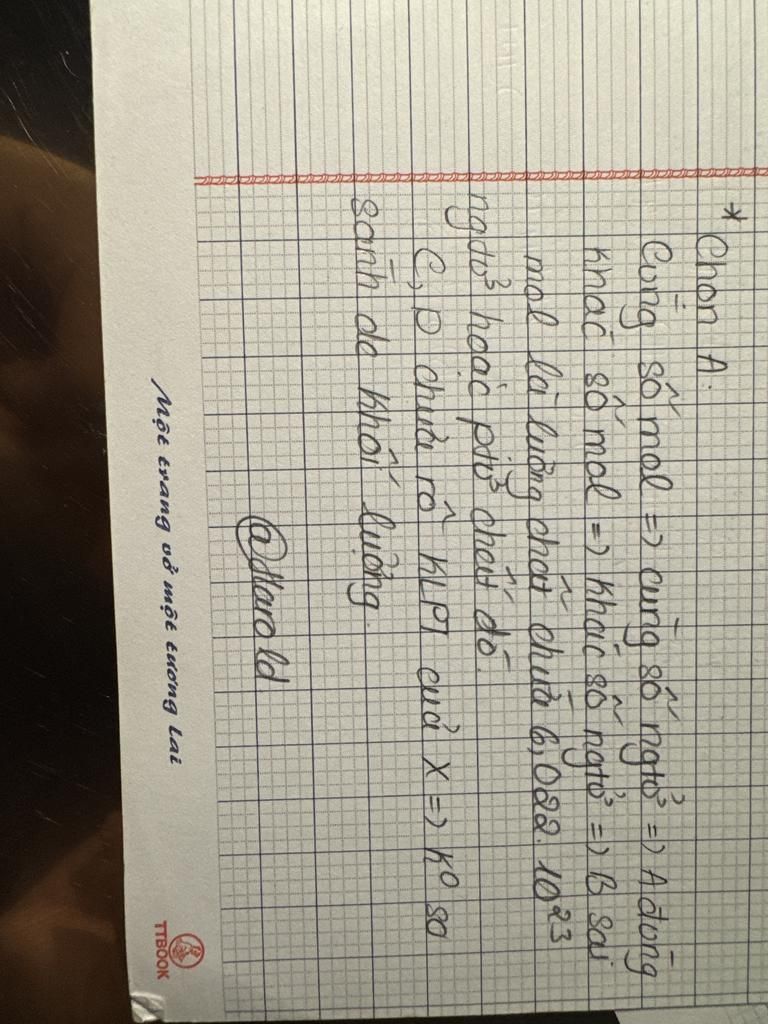 * Chọn A.
Cùng số mol => cùng số ngtử => A đúng
khác số mol => khác số ngtử => B sai
mol là lượng chất chứa 6,022. 10²³
ngtử hoặc ptử chất đó.
C, D chưa rõ KLPT của X => K⁰ so
sánh dc khối lượng.
@Harold
Một trang vở một tương lai
TTBOOK